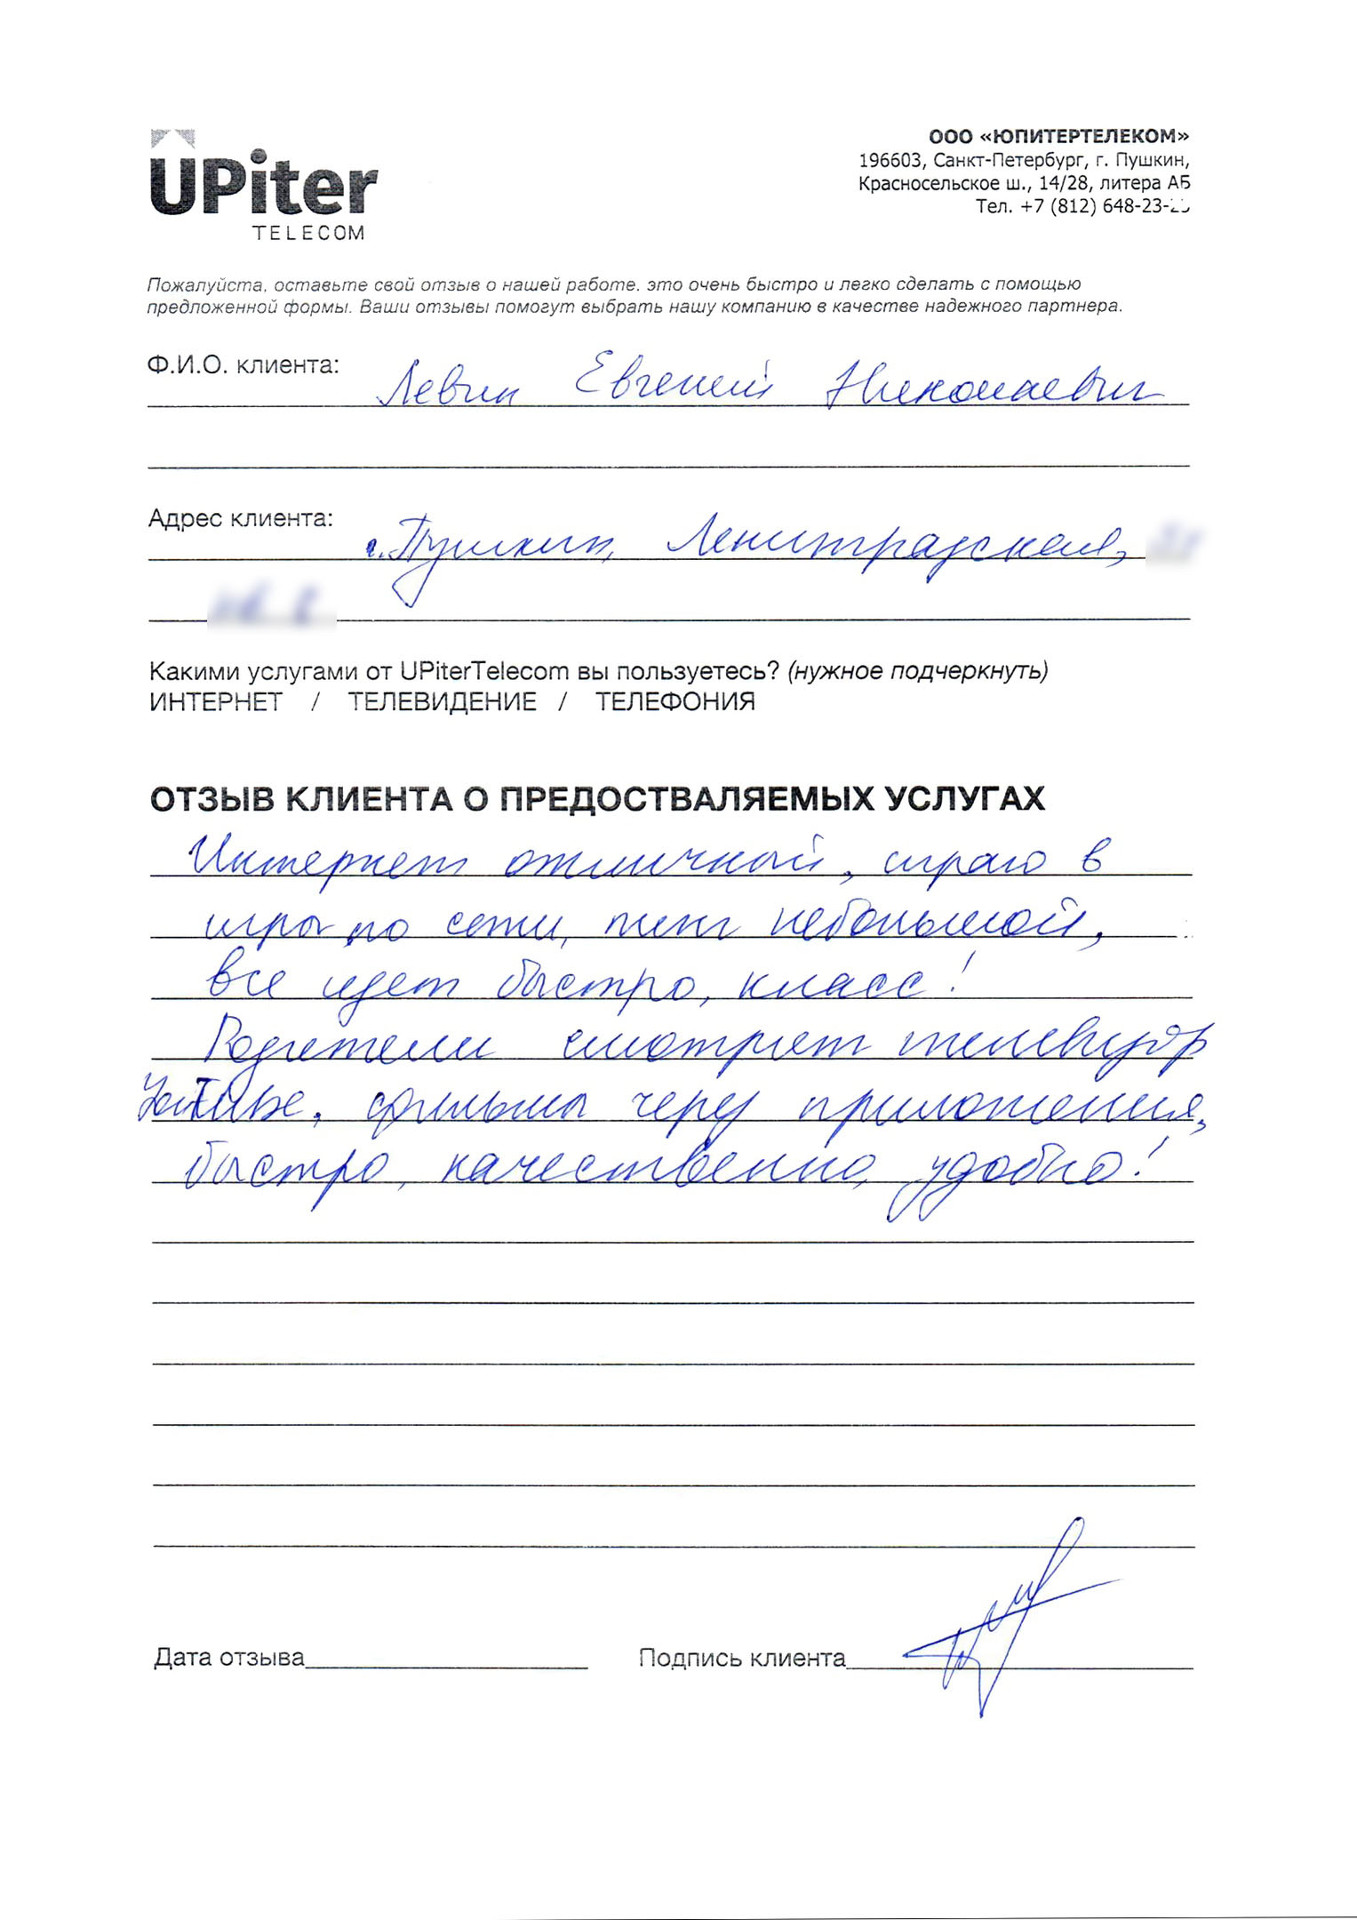 UPiter
TELECOM
ООО «ЮПИТЕРТЕЛЕКОМ»
196603, Санкт-Петербург, г. Пушкин,
Красносельское ш., 14/28, литера АБ
Тел. +7 (812) 648-23-
Пожалуйста, оставьте свой отзыв о нашей работе, это очень быстро и легко сделать с помощью
предложенной формы. Ваши отзывы помогут выбрать нашу компанию в качестве надежного партнера.
Ф.И.О. клиента: Левин Евгений Николаевич
Адрес клиента: г. Пушкин, Ленинградская,
Какими услугами от UPiterTelecom вы пользуетесь? (нужное подчеркнуть)
ИНТЕРНЕТ / ТЕЛЕВИДЕНИЕ / ТЕЛЕФОНИЯ
ОТЗЫВ КЛИЕНТА О ПРЕДОСТВАЛЯЕМЫХ УСЛУГАХ
Интернет отличный, играю в
игры по сети, пинг небольшой,
все идет быстро, класс!
Родители смотрят телевизор
YouTube, фильмы через приложения,
быстро, качественно, удобно!
Дата отзыва Подпись клиента